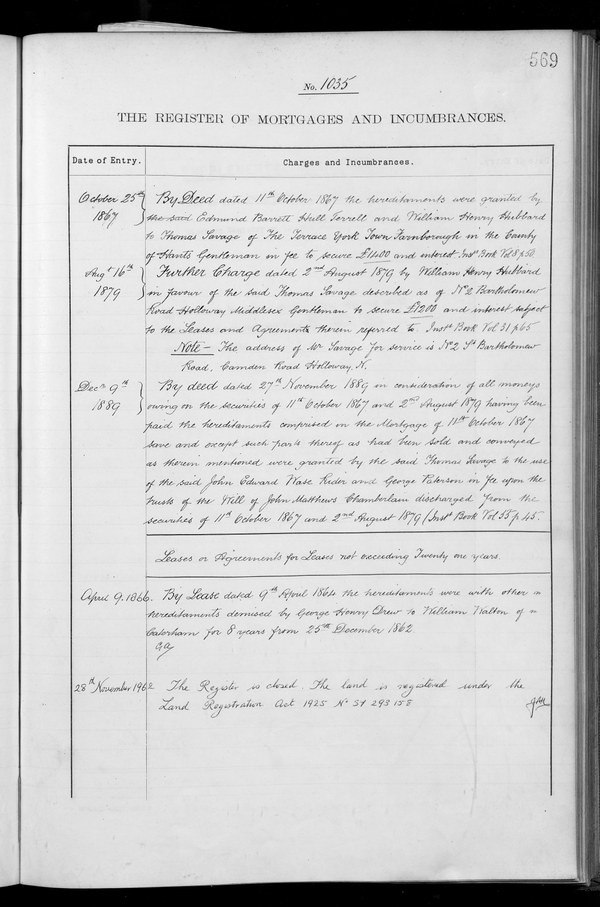 569
No. 1035
THE REGISTER OF MORTGAGES AND INCUMBRANCES.
Date of Entry. Charges and Incumbrances.
October 25th 1867 By Deed dated 11th October 1867 the hereditaments were granted by
the said Edmund Barrett Hull Terrell and William Henry Hubbard
to Thomas Savage of The Terrace York Town Farnborough in the County
of Hants Gentleman in fee to secure £1400 and interest Inst Book Vol 8 p 50
Augt 16th 1879 Further Charge dated 2nd August 1879 by William Henry Hubbard
in favour of the said Thomas Savage described as of No 2 Bartholomew
Road Holloway Middlesex Gentleman to secure £1200 and interest subject
to the Leases and Agreements therein referred to Inst Book Vol 31 p 65
Note - The address of Mr Savage for service is No 2 St Bartholomew
Road, Camden Road Holloway, N.
Decr 9th 1889 By deed dated 27th November 1889 in consideration of all moneys
owing on the securities of 11th October 1867 and 2nd August 1879 having been
paid the hereditaments comprised in the Mortgage of 11th October 1867
save and except such parts thereof as had been sold and conveyed
as therein mentioned were granted by the said Thomas Savage to the use
of the said John Edward Wase Rider and George Paterson in fee upon the
trusts of the Will of John Matthews Chamberlain discharged from the
securities of 11th October 1867 and 2nd August 1879 (Inst Book Vol 55 p 45.
Leases or Agreements for Leases not exceeding Twenty one years.
April 9. 1866. By Lease dated 9th April 1864 the hereditaments were with other
hereditaments demised by George Henry Drew to William Walton of
Caterham for 8 years from 25th December 1862
28th November 1962 The Register is closed. The land is registered under the
Land Registration Act 1925 No SY 298158